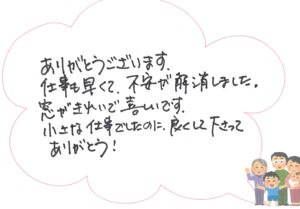 ありがとうございます.
仕事も早くて、不安が解消しました。
窓がきれいで喜しいです。
小さな仕事でしたのに、良くして下さって
ありがとう!